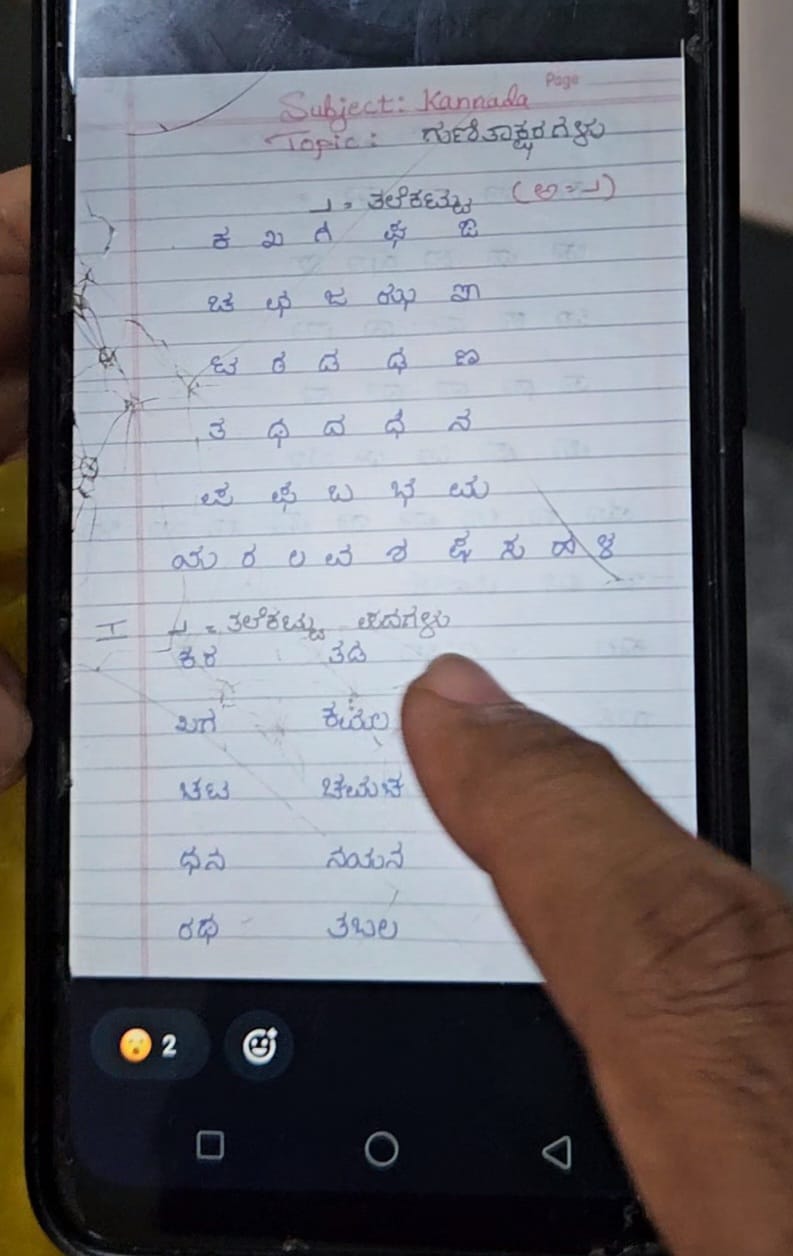 Page
Subject: Kannada
Topic: ಗುಣಿತಾಕ್ಷರಗಳು
= ತಲೆಕಟ್ಟು (ಅ = )
ಕ ಖ ಗ ಘ ಙ
ಚ ಛ ಜ ಝ ಞ
ಟ ಠ ಡ ಢ ಣ
ತ ಥ ದ ಧ ನ
ಪ ಫ ಬ ಭ ಮ
ಯ ರ ಲ ವ ಶ ಷ ಸ ಹ ಳ
I = ತಲೆಕಟ್ಟು ಪದಗಳು
ಕರ ತಡ
ಖಗ
ಚಟ ಚಮಚ
ಧನ ನಯನ
ರಥ ತಬಲ
2